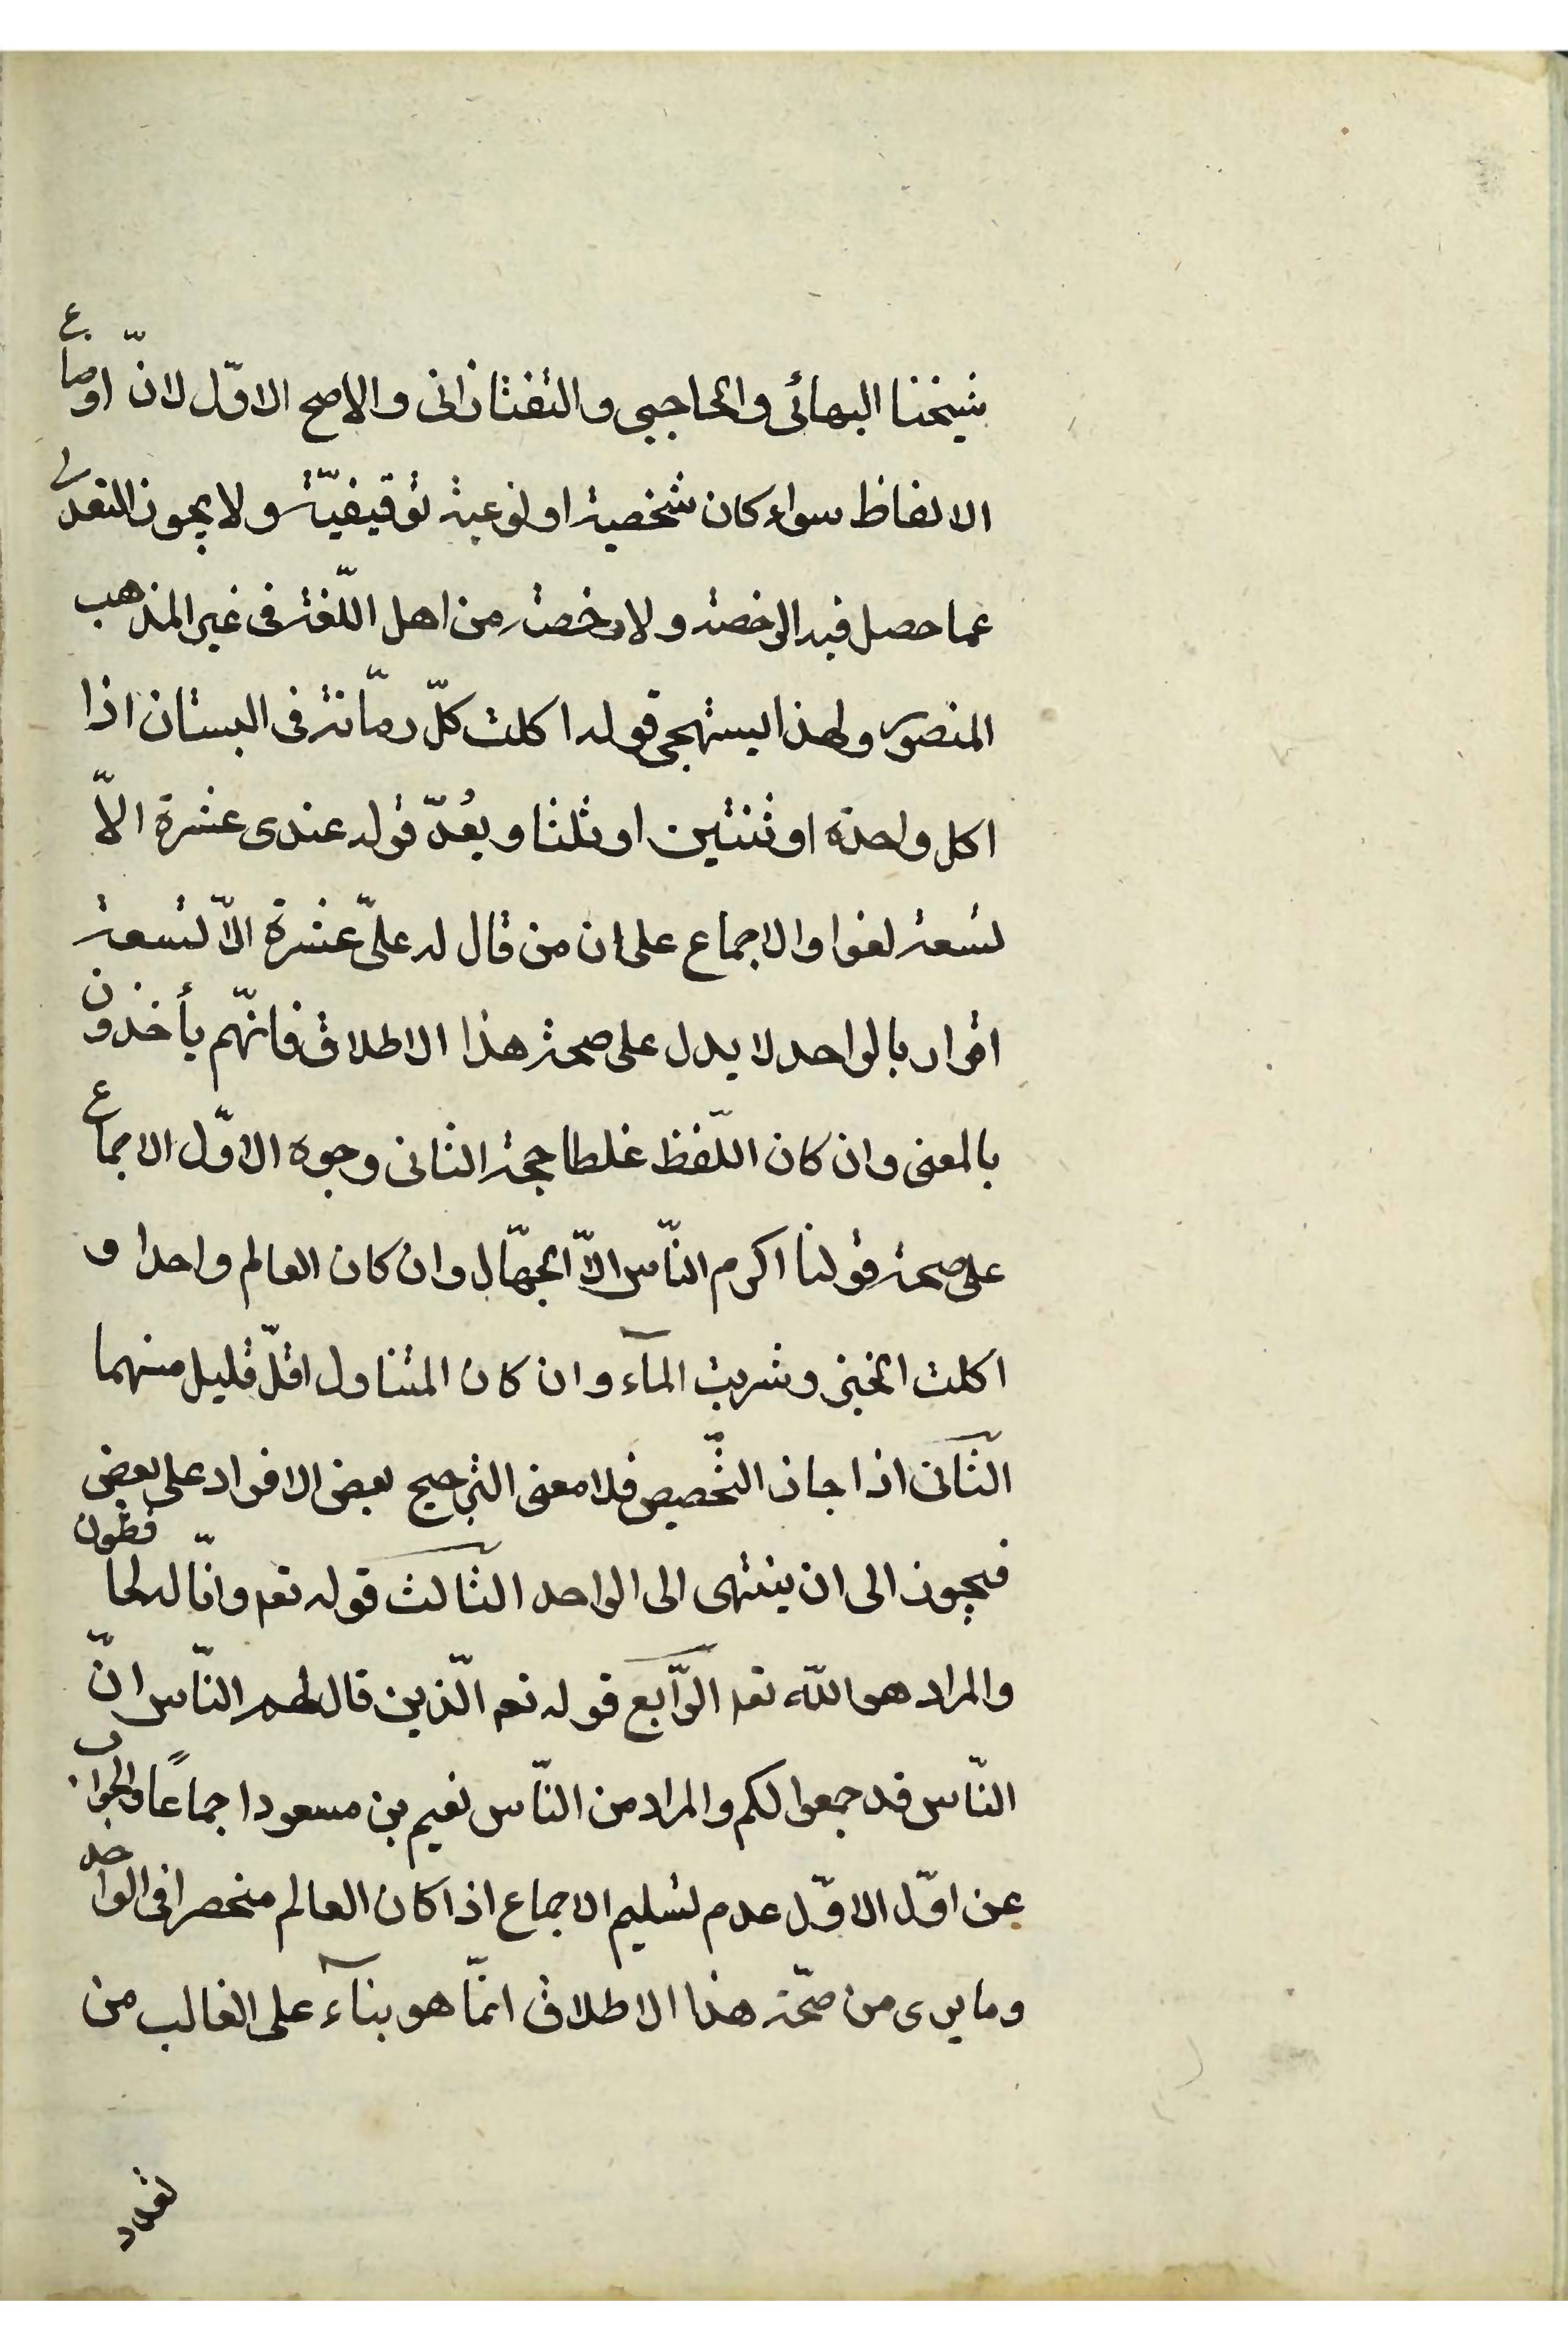 شيخنا البهائى والحاجبى والتفتازانى والاصح الاوّل لانّ اوضاع
الالفاظ سواء كان شخصية او نوعية توقيفيّة ولا يجوز التعدى
عما حصل فيه الرخصة ولا رخصة من اهل اللّغة فى غير المذهب
المنصور ولهذا يستهجى قوله اكلت كلّ رمّانة فى البستان اذا
اكل واحدة او ثنتين او ثلثا ويعُدّ قوله عندى عشرة الاّ
تسعة لغوا والاجماع على ان من قال له علىّ عشرة الاّ تسعة
اقرار بالواحد لا يدل على صحة هذا الاطلاق فانّهم يأخذون
بالمعنى وان كان اللّفظ غلطا حجة الثانى وجوه الاوّل الاجماع
على صحة قولنا اكرم النّاس الاّ الجهّال وان كان العالم واحدا و
اكلت الخبز وشربت المآء وان كان المتناول اقلّ قليل منهما
الثّانى اذا جاز التخّصيص فلا معنى الترجيح بعض الافراد على بعض
فيجوز الى ان ينتهى الى الواحد الثالث قوله تعم وانّا له لحافظون
والمراد هو اللّه تعم الرّابع قوله تعم الّذين قال لهم النّاس انّ
النّاس قد جمعوا لكم والمراد من النّاس نعيم بن مسعود اجماعًا والجواب
عن اوّل الاوّل عدم تسليم الاجماع اذا كان العالم منحصرا فى الواحد
وما يرى من صحّة هذا الاطلاق انمّا هو بنآء على الغالب من
تعداد